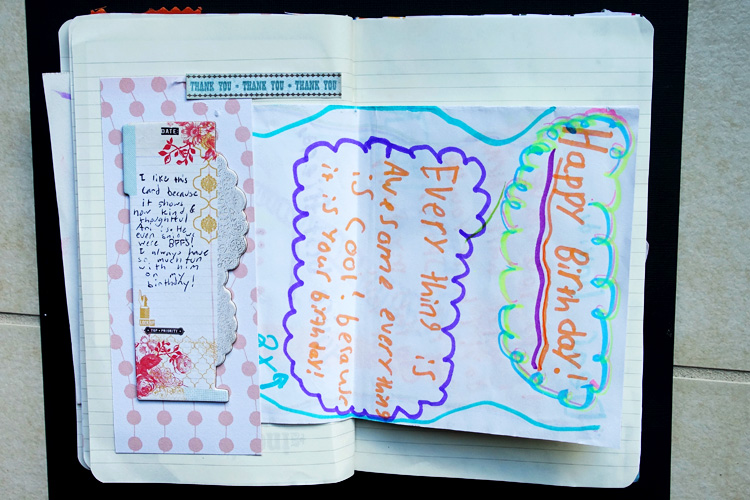 THANK YOU • THANK YOU • THANK YOU
DATE
I like this
card because
it shows
how kind &
thoughtful
He
even
were BFFS!
I always have
so much fun
with him
on my
birthday!
• TOP • PRIORITY •
Happy Birthday!
Every thing is
Awesome every thing
is Cool! because
it is Your birthday!